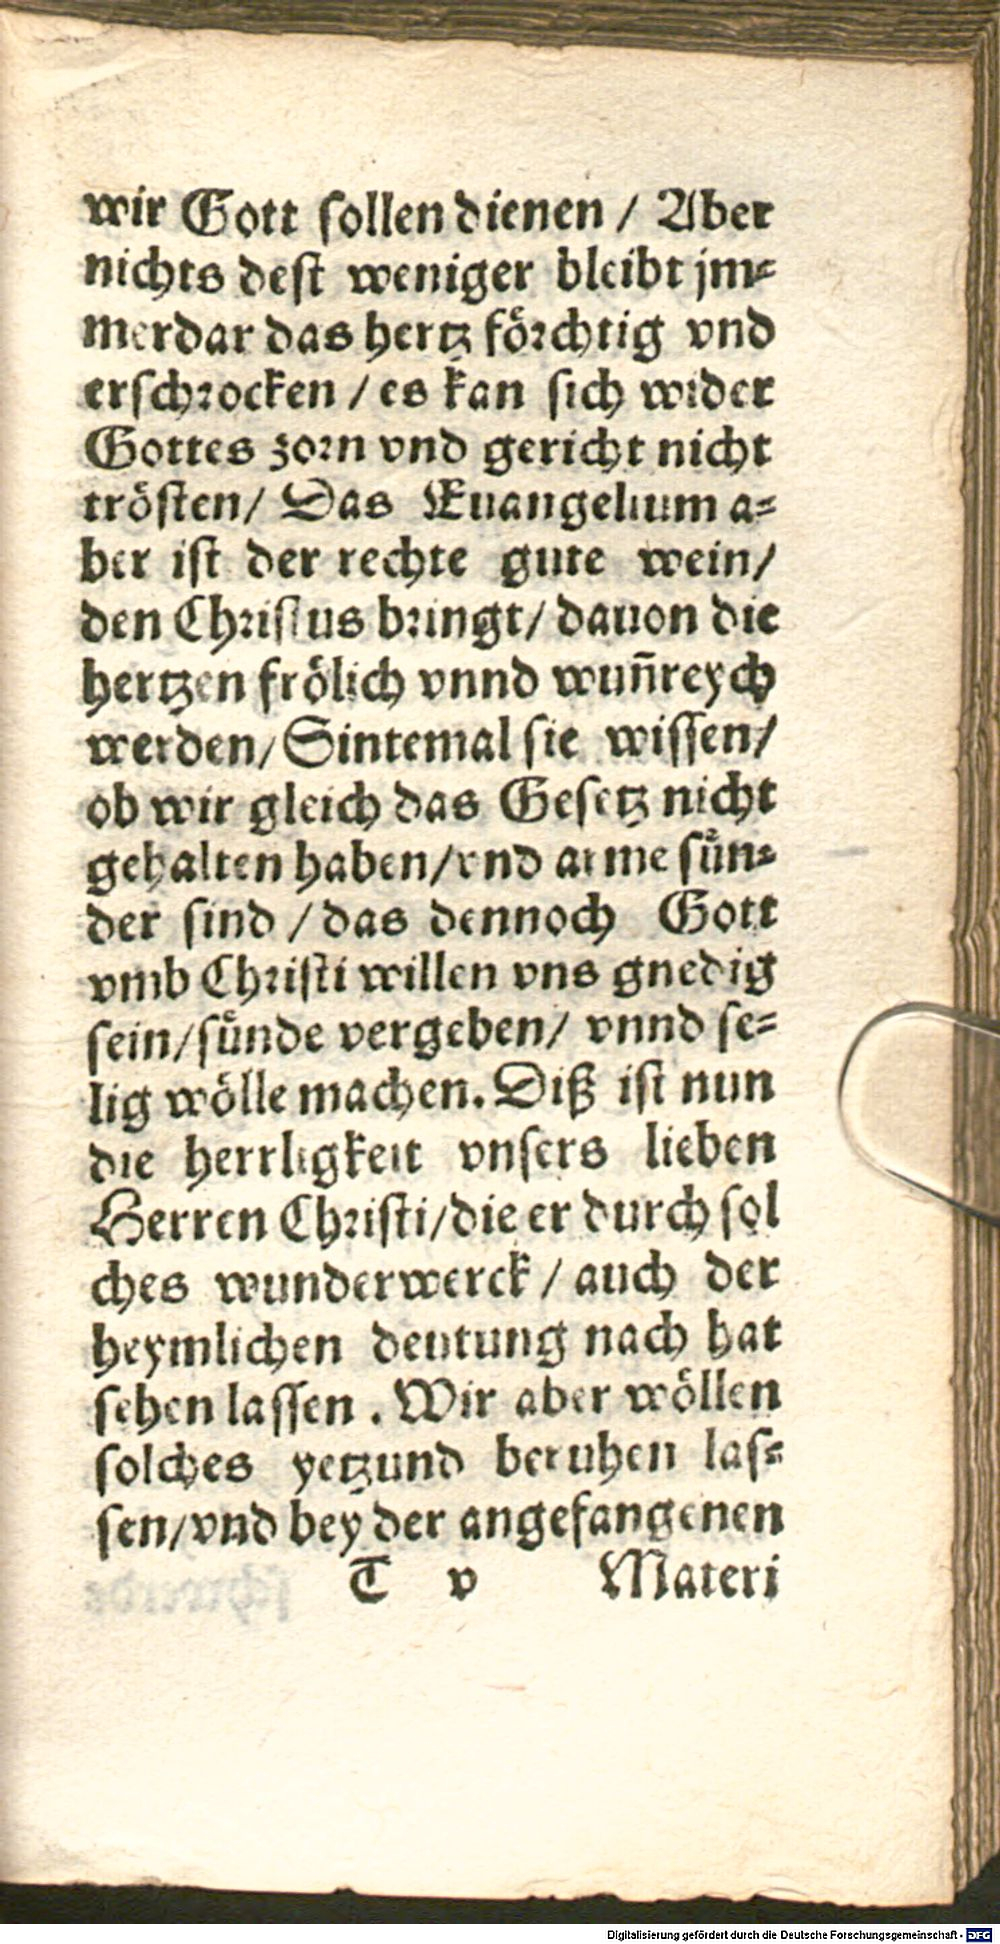 wir Gott sollen dienen / Aber
nichts dest weniger bleibt jm⸗
merdar das hertz förchtig vnd
erschrocken / es kan sich wider
Gottes zorn vnd gericht nicht
trösten / Das Euangelium a⸗
ber ist der rechte gute wein /
den Christus bringt / dauon die
hertzen frölich vnnd wun̄reych
werden / Sintemal sie wissen /
ob wir gleich das Gesetz nicht
gehalten haben / vnd arme sün⸗
der sind / das dennoch Gott
vmb Christi willen vns gnedig
sein / sünde vergeben / vnnd se⸗
lig wölle machen. Diß ist nun
die herrligkeit vnsers lieben
Herren Christi / die er durch sol
ches wunderwerck / auch der
heymlichen deutung nach hat
sehen lassen. Wir aber wöllen
solches yetzund beruhen las⸗
sen / vnd bey der angefangenen
T v Materi
Digitalisierung gefördert durch die Deutsche Forschungsgemeinschaft - DFG